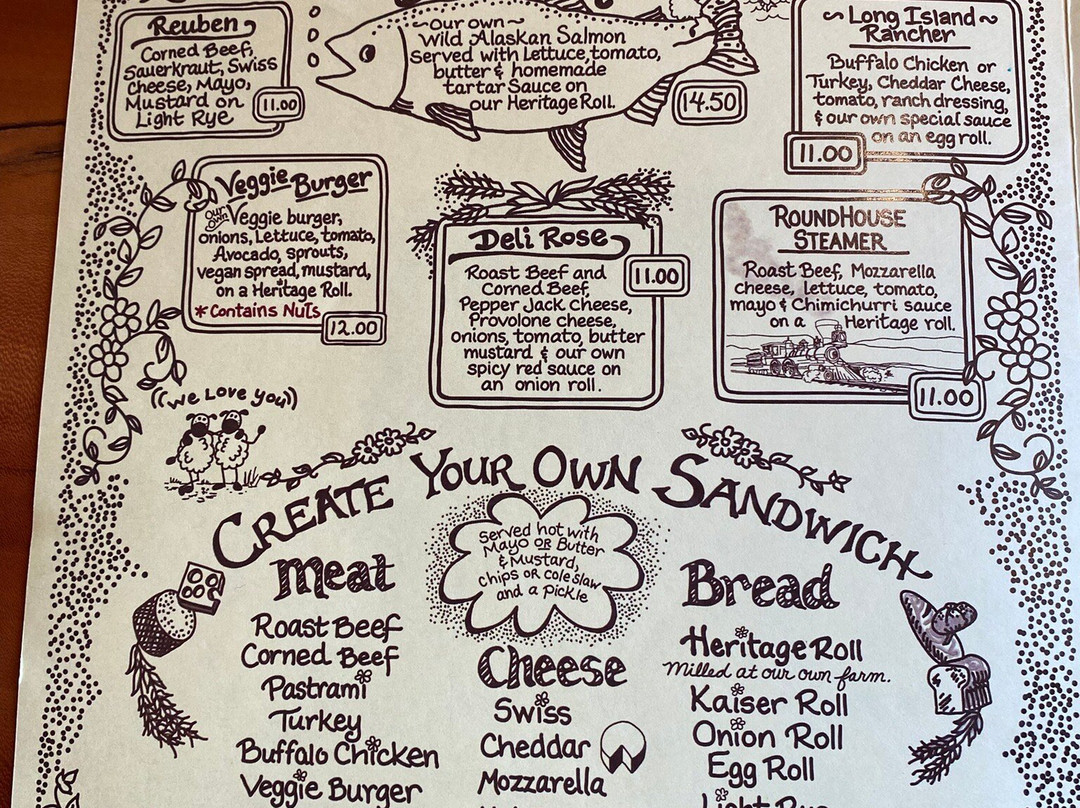 Reuben
Corned Beef,
Sauerkraut, Swiss
cheese, Mayo,
Mustard on
Light Rye
11.00
~our own~
Wild Alaskan Salmon
Served with Lettuce, tomato,
butter & homemade
tartar Sauce on
our Heritage Roll.
14.50
~Long Island~
Rancher
Buffalo Chicken or
Turkey, Cheddar Cheese,
tomato, ranch dressing,
& our own special sauce
on an egg roll.
11.00
Veggie Burger
our own Veggie burger,
onions, Lettuce, tomato,
Avocado, sprouts,
vegan spread, mustard,
on a Heritage Roll.
*Contains Nuts
12.00
Deli Rose
11.00
Roast Beef and
Corned Beef,
Pepper Jack Cheese,
Provolone cheese,
onions, tomato, butter
mustard & our own
spicy red sauce on
an onion roll.
RoundHouse
Steamer
Roast Beef, Mozzarella
cheese, lettuce, tomato,
mayo & Chimichurri sauce
on a Heritage roll.
11.00
((We Love you))
Create Your Own Sandwich
Served hot with
Mayo or Butter
& Mustard,
chips or cole slaw
and a pickle
Meat
Roast Beef
Corned Beef
Pastrami
Turkey
Buffalo Chicken
Veggie Burger
Cheese
Swiss
Cheddar
Mozzarella
Bread
Heritage Roll
Milled at our own farm.
Kaiser Roll
Onion Roll
Egg Roll
Light Rye